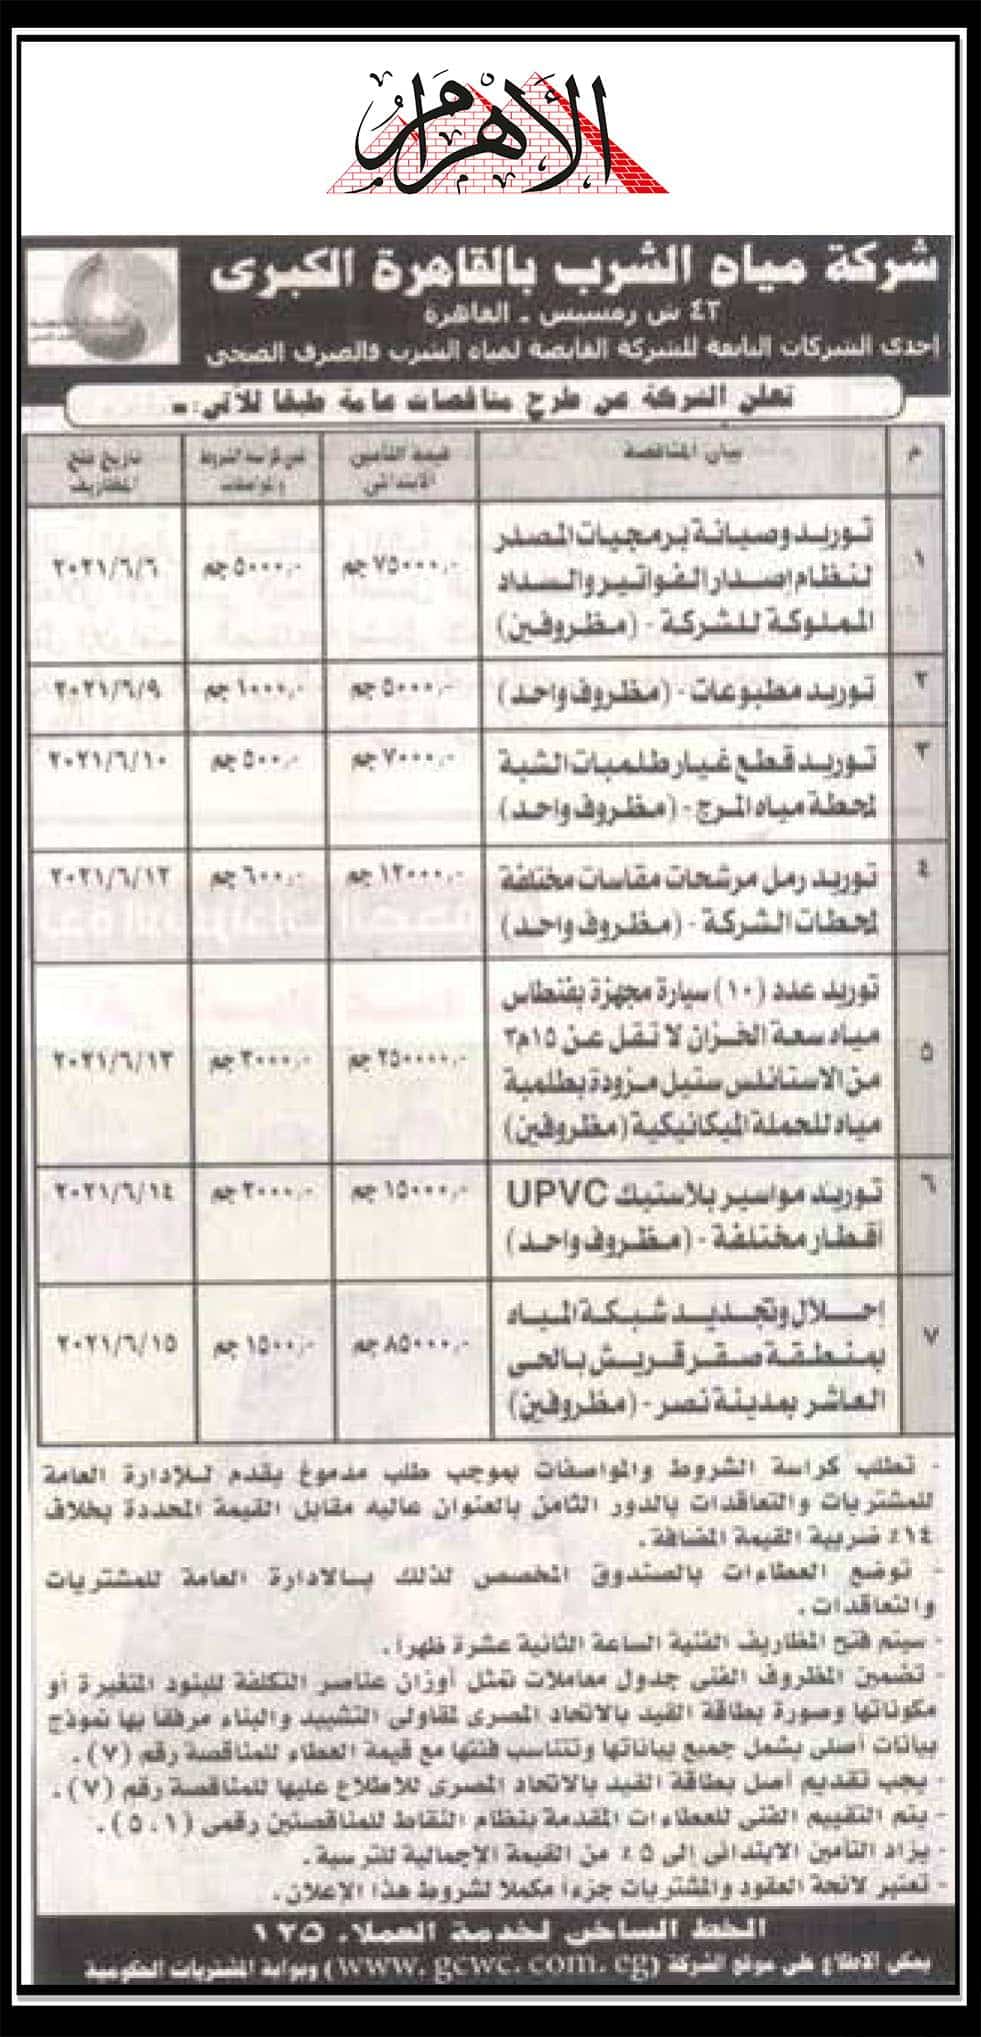 الأهرام
شركة مياه الشرب بالقاهرة الكبرى
٤٢ ش رمسيس - القاهرة
احدى الشركات التابعة للشركة القابضة لمياه الشرب والصرف الصحى
تعلن الشركة عن طرح مناقصات عامة طبقا للآتى: -
م
بيان المناقصة
قيمة التأمين
الابتدائى
ثمن كراسة الشروط
والمواصفات
تاريخ فتح
المظاريف
١
توريد وصيانة برمجيات المصدر
لنظام إصدار الفواتير والسداد
المملوكة للشركة - (مظروفين)
٧٥٠٠٠,- جم
٥٠٠٠,- جم
٢٠٢١/٦/٦
٢
توريد مطبوعات - (مظروف واحد)
٥٠٠٠,- جم
١٠٠٠,- جم
٢٠٢١/٦/٩
٣
توريد قطع غيار طلمبات الشبة
لمحطة مياه المرج - (مظروف واحد)
٧٠٠٠,- جم
٥٠٠,- جم
٢٠٢١/٦/١٠
٤
توريد رمل مرشحات مقاسات مختلفة
لمحطات الشركة - (مظروف واحد)
جم
٦٠٠,- جم
٥
توريد عدد (١٠) سيارة مجهزة بفنطاس
مياه سعة الخزان لا تقل عن ١٥م٣
من الاستانلس ستيل مزودة بطلمبة
مياه للحملة الميكانيكية (مظروفين)
٢٥٠٠٠٠,- جم
جم
٢٠٢١/٦/١٣
٦
توريد مواسير بلاستيك UPVC
أقطار مختلفة - (مظروف واحد)
١٥٠٠٠,- جم
جم
٢٠٢١/٦/١٤
٧
إحلال وتجديد شبكة المياه
بمنطقة صقر قريش بالحى
العاشر بمدينة نصر - (مظروفين)
٨٥٠٠٠,- جم
١٥٠٠,- جم
٢٠٢١/٦/١٥
- تطلب كراسة الشروط والمواصفات بموجب طلب مدموغ يقدم للإدارة العامة
للمشتريات والتعاقدات بالدور الثامن بالعنوان عاليه مقابل القيمة المحددة بخلاف
١٤٪ ضريبة القيمة المضافة.
- توضع العطاءات بالصندوق المخصص لذلك بالادارة العامة للمشتريات
والتعاقدات.
- سيتم فتح المظاريف الفنية الساعة الثانية عشرة ظهرا.
- تضمين المظروف الفنى جدول معاملات تمثل أوزان عناصر التكلفة للبنود المتغيرة أو
مكوناتها وصورة بطاقة القيد بالاتحاد المصرى لمقاولى التشييد والبناء مرفقا بها نموذج
بيانات أصلى يشمل جميع بياناتها وتتناسب فئتها مع قيمة العطاء للمناقصة رقم (٧).
- يجب تقديم أصل بطاقة القيد بالاتحاد المصرى للاطلاع عليها للمناقصة رقم (٧).
- يتم التقييم الفنى للعطاءات المقدمة بنظام النقاط للمناقصتين رقمى (٥،١).
- يزاد التأمين الابتدائى إلى ٥٪ من القيمة الاجمالية للترسية.
- تعتبر لائحة العقود والمشتريات جزءا مكملا لشروط هذا الإعلان.
الخط الساخن لخدمة العملاء ١٢٥
يمكن الاطلاع على موقع الشركة (www.gcwc.com.eg) وبوابة المشتريات الحكومية